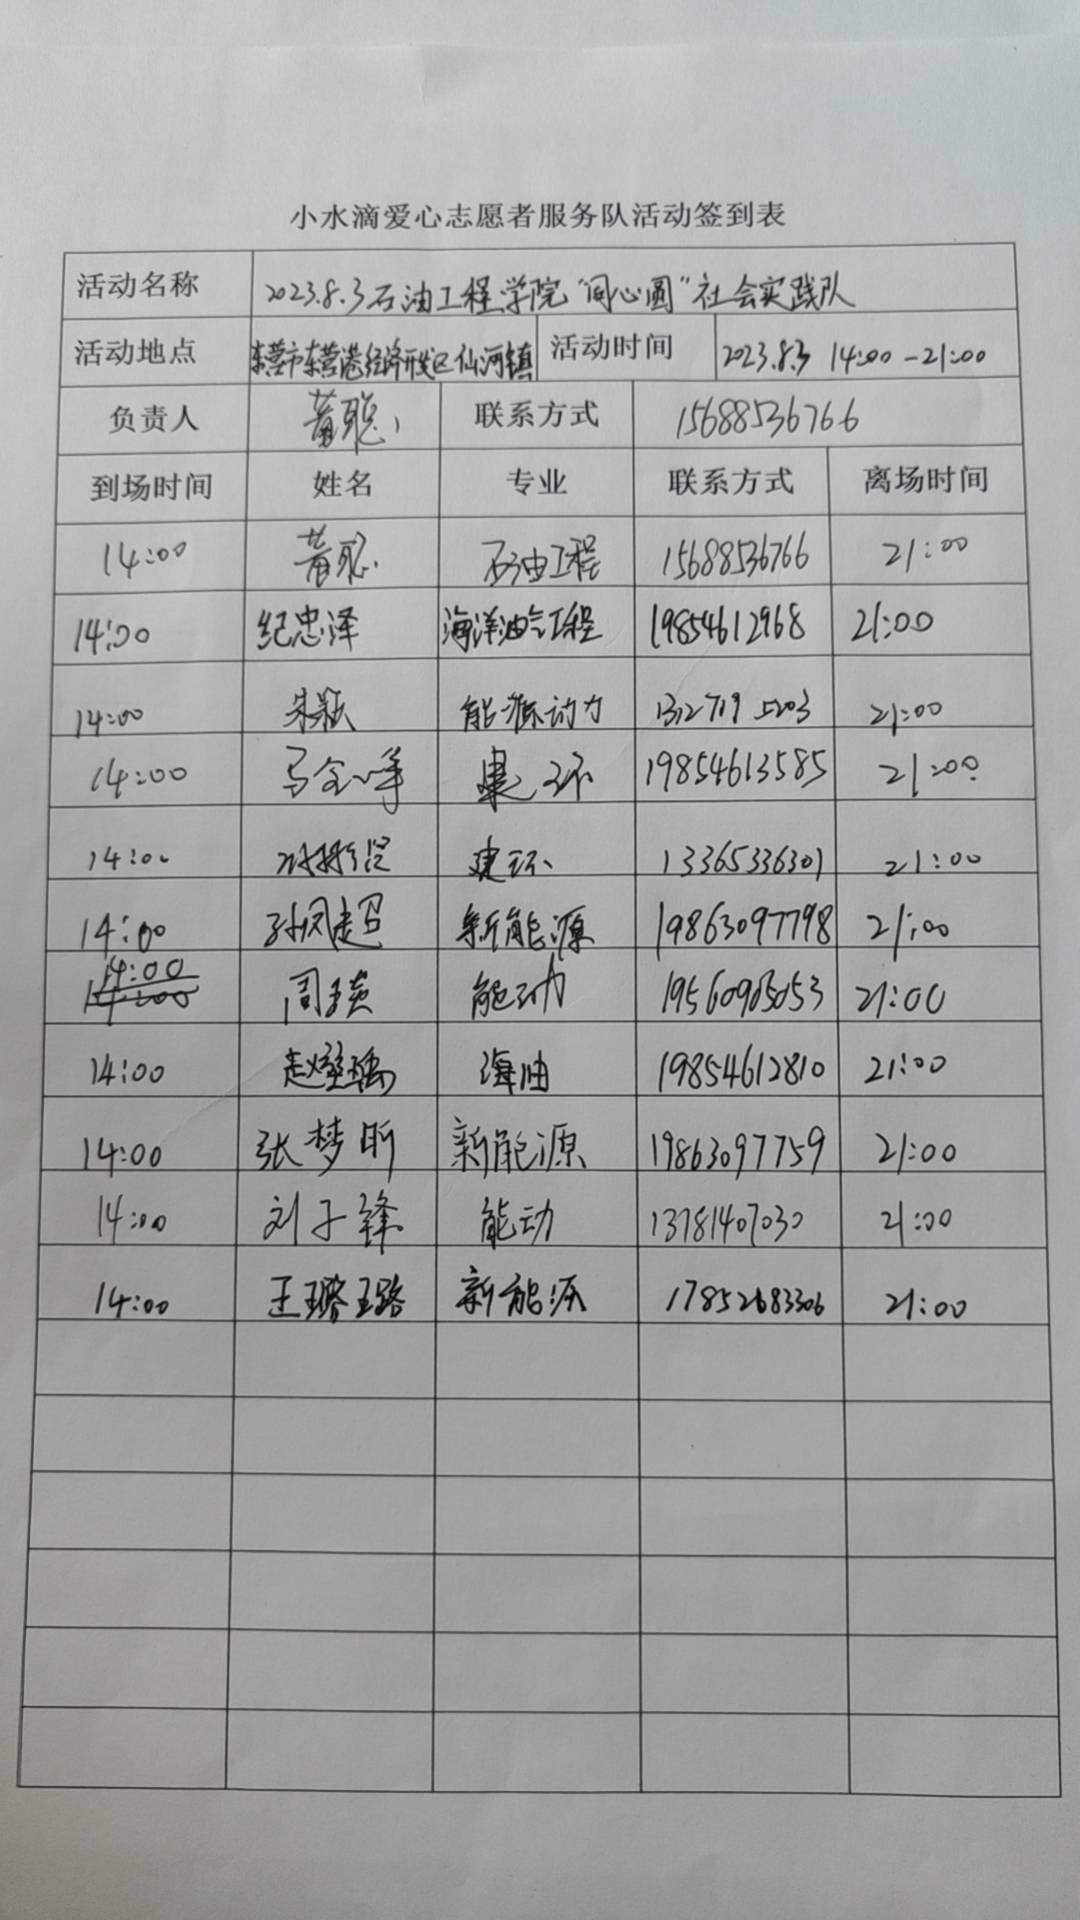 小水滴爱心志愿者服务队活动签到表
活动名称 2023.8.3石油工程学院“同心圆”社会实践队
活动地点 东营市东营港经济开发区仙河镇 活动时间 2023.8.3 14:00-21:00
负责人 黄聪 联系方式 15688536766
到场时间 姓名 专业 联系方式 离场时间
14:00 黄聪 石油工程 15688536766 21:00
14:00 纪忠泽 海洋油气工程 19854612968 21:00
14:00 朱颖 能源动力 13127195203 21:00
14:00 马金峰 建环 19854613585 21:00
14:00 建环 13365336301 21:00
14:00 孙凤超 新能源 19863097798 21:00
14:00 周瑛 能动 21:00
14:00 海油 19854612810 21:00
14:00 张梦昕 新能源 19863097759 21:00
14:00 刘子锋 能动 13781407030 21:00
14:00 王璐璐 新能源 17852683306 21:00